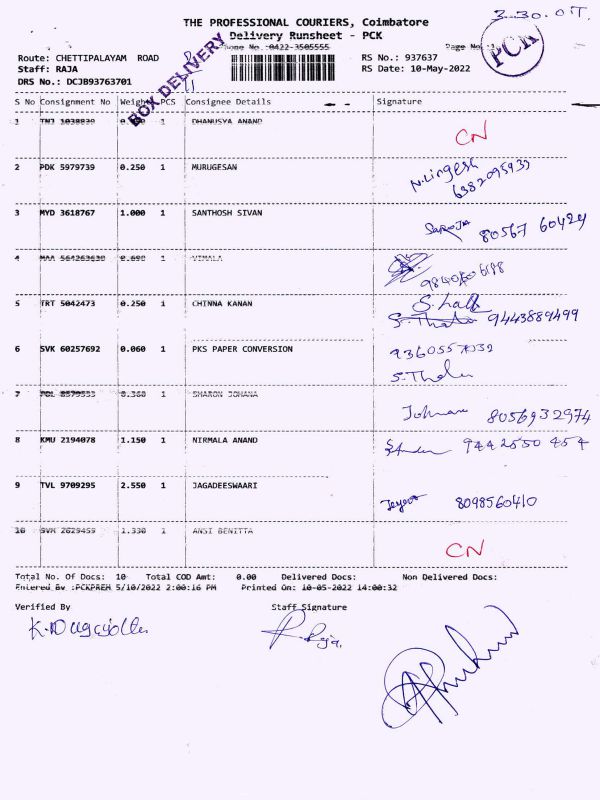 3-30. OT.
THE PROFESSIONAL COURIERS, Coimbatore
Delivery Runsheet - PCK
Phone No.:0422-3505555 Page No.:1
PCK
Route: CHETTIPALAYAM ROAD RS No.: 937637
Staff: RAJA RS Date: 10-May-2022
DRS No.: DCJB93763701
BOX DELIVERY
S No Consignment No Weight PCS Consignee Details Signature
1 1 DHANUSYA ANAND
CN
2 PDK 5979739 0.250 1 MURUGESAN
N.Lingesh
6382095933
3 MYD 3618767 1.000 1 SANTHOSH SIVAN
Saroja 80567 60424
4 MAA 564263630 0.690 1 VIMALA
5 TRT 5042473 0.250 1 CHINNA KANAN
9443889499
6 SVK 60257692 0.060 1 PKS PAPER CONVERSION
7 0.360 1 SHARON JOHANA
8056932974
8 KMU 2194078 1.150 1 NIRMALA ANAND
9442550 454
9 TVL 9709295 2.550 1 JAGADEESWAARI
8098560410
10 SVM 2629459 1.330 1 ANSI BENITTA
CN
Total No. Of Docs: 10 Total COD Amt: 0.00 Delivered Docs: Non Delivered Docs:
Entered By :PCKPREM 5/10/2022 2:00:16 PM Printed On: 10-05-2022 14:00:32
Verified By Staff Signature
R. Raja.